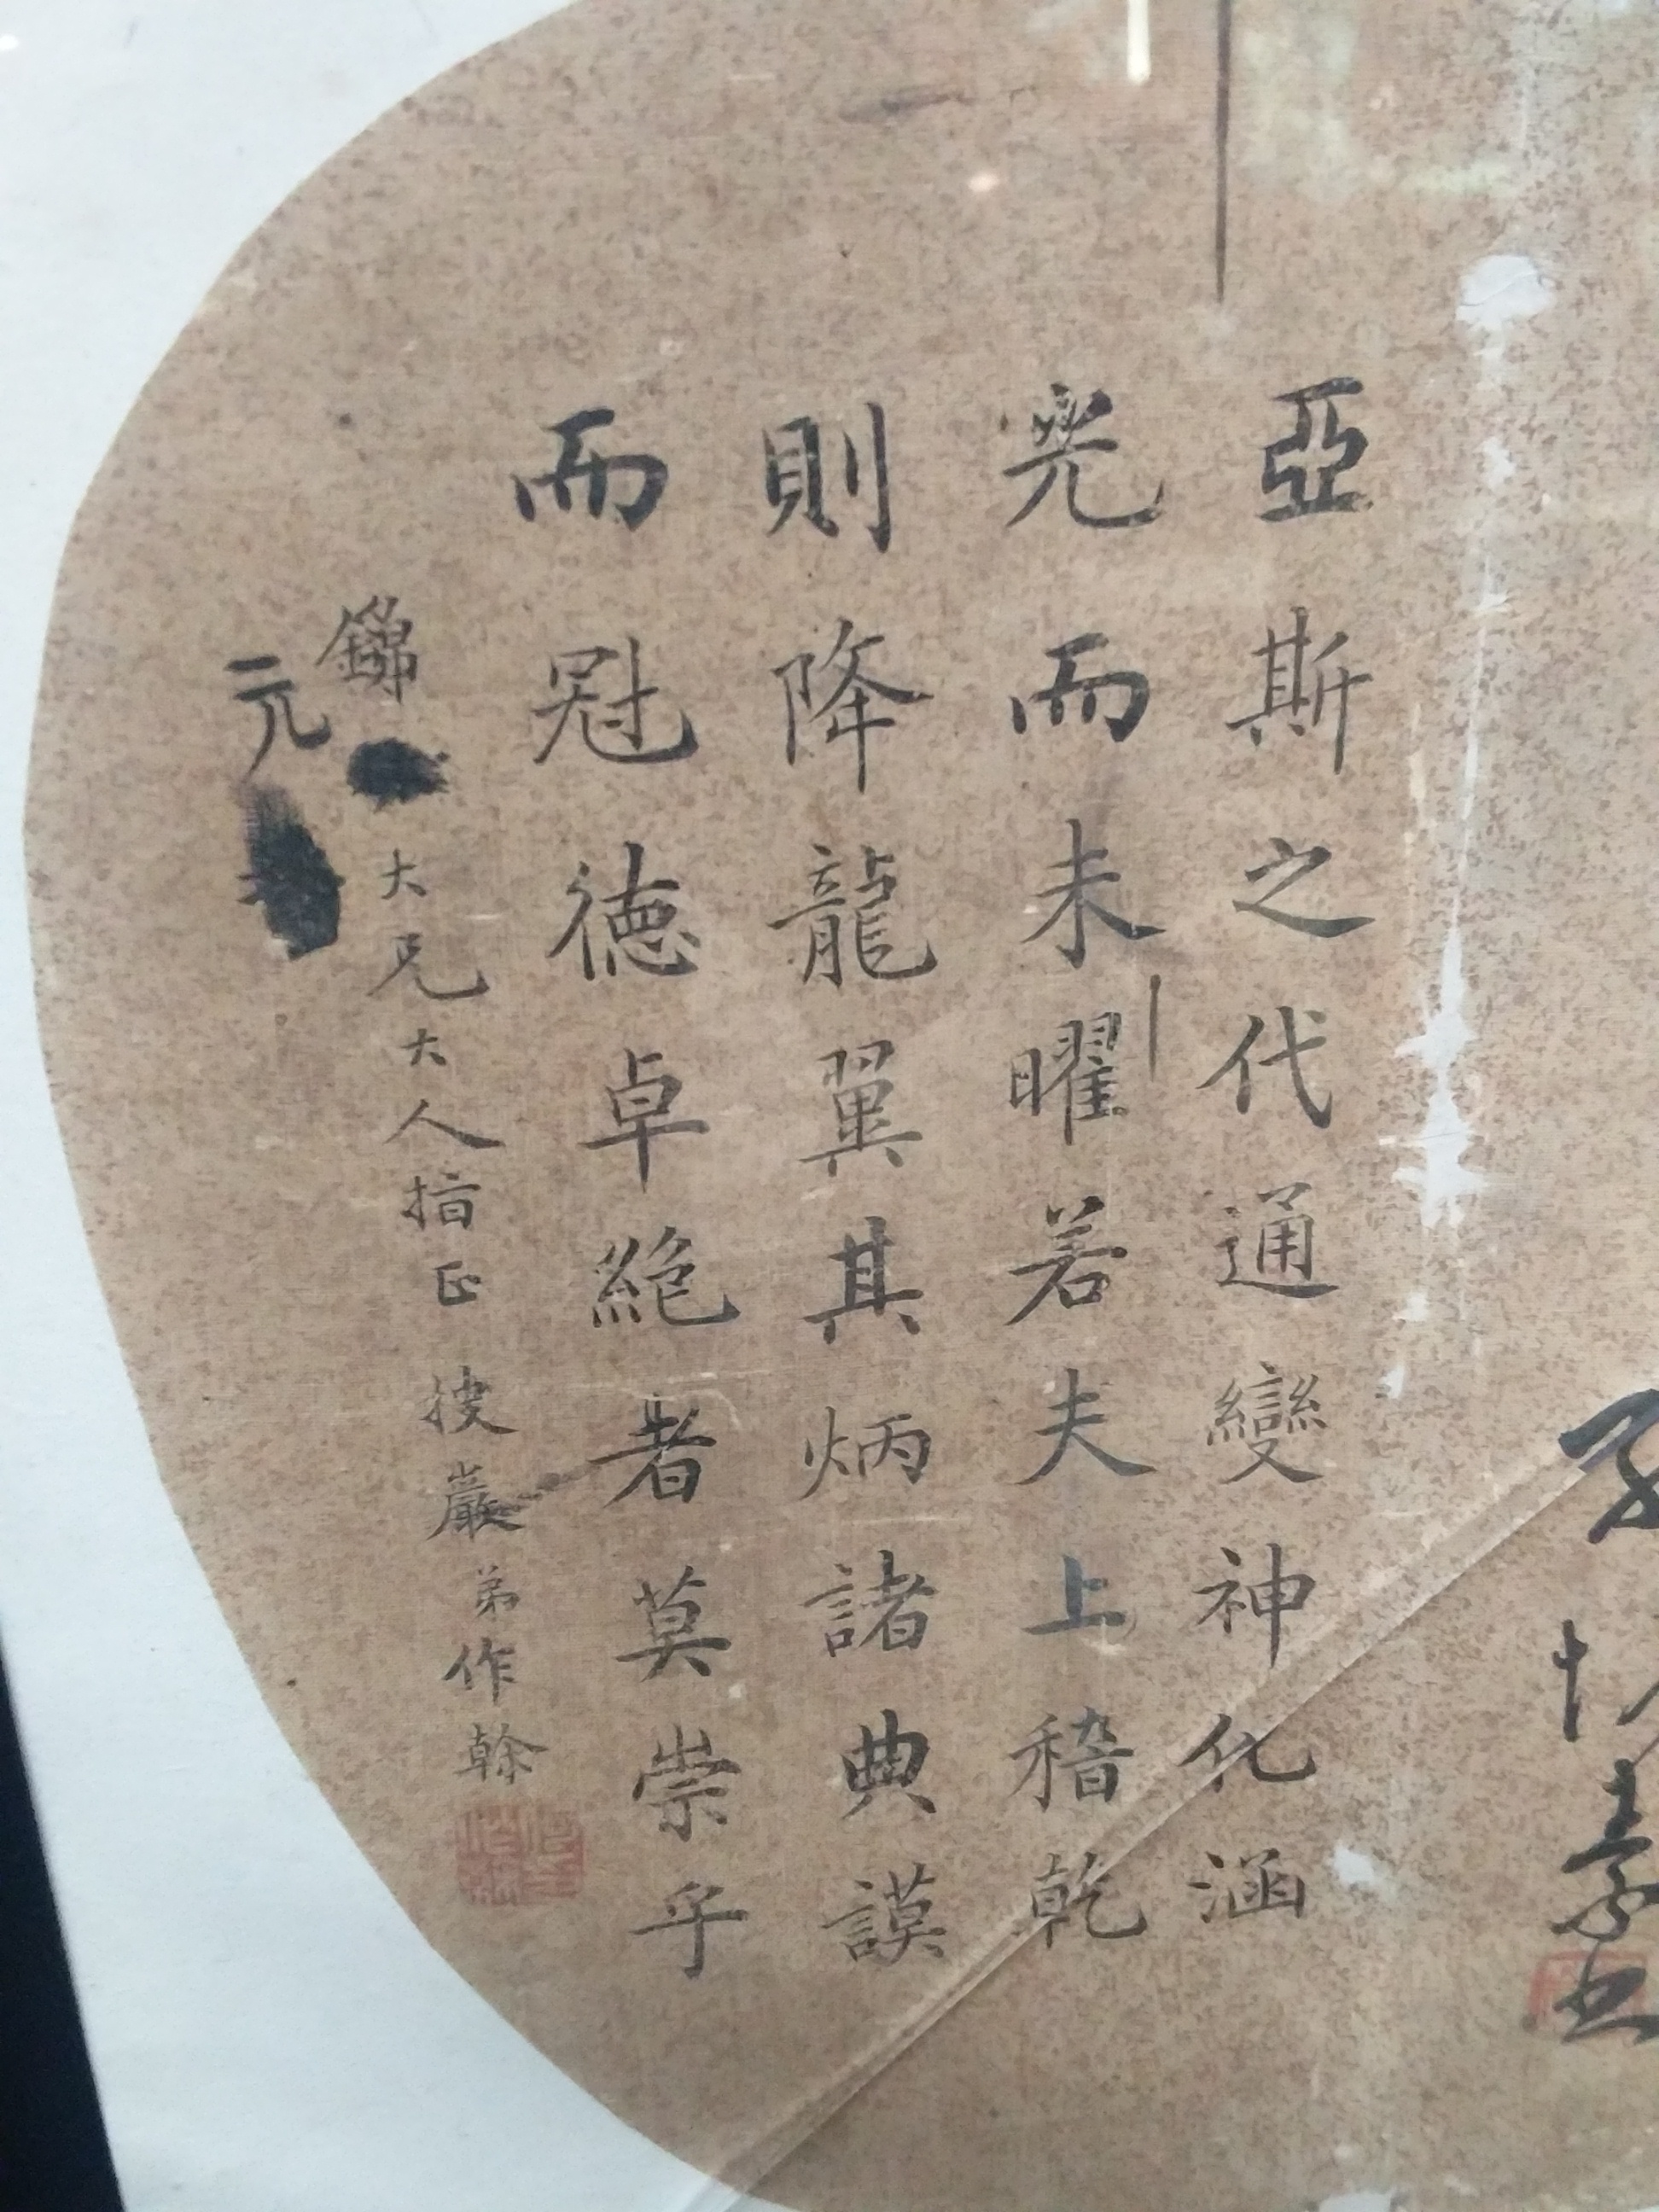 亞斯之代通變神化涵
光而未曜若夫上稽乾
則降龍翼其炳諸典謨
而冠德卓絕者莫崇乎
錦 大兄大人指正 弟作
元